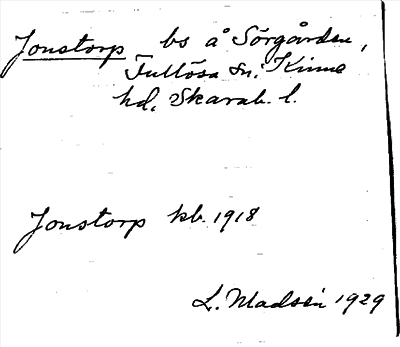 Jonstorp bs å Sörgården,
Fullösa sn. Kinne
hd, Skarab. l.
Jonstorp kb. 1918
L. Madsén 1929